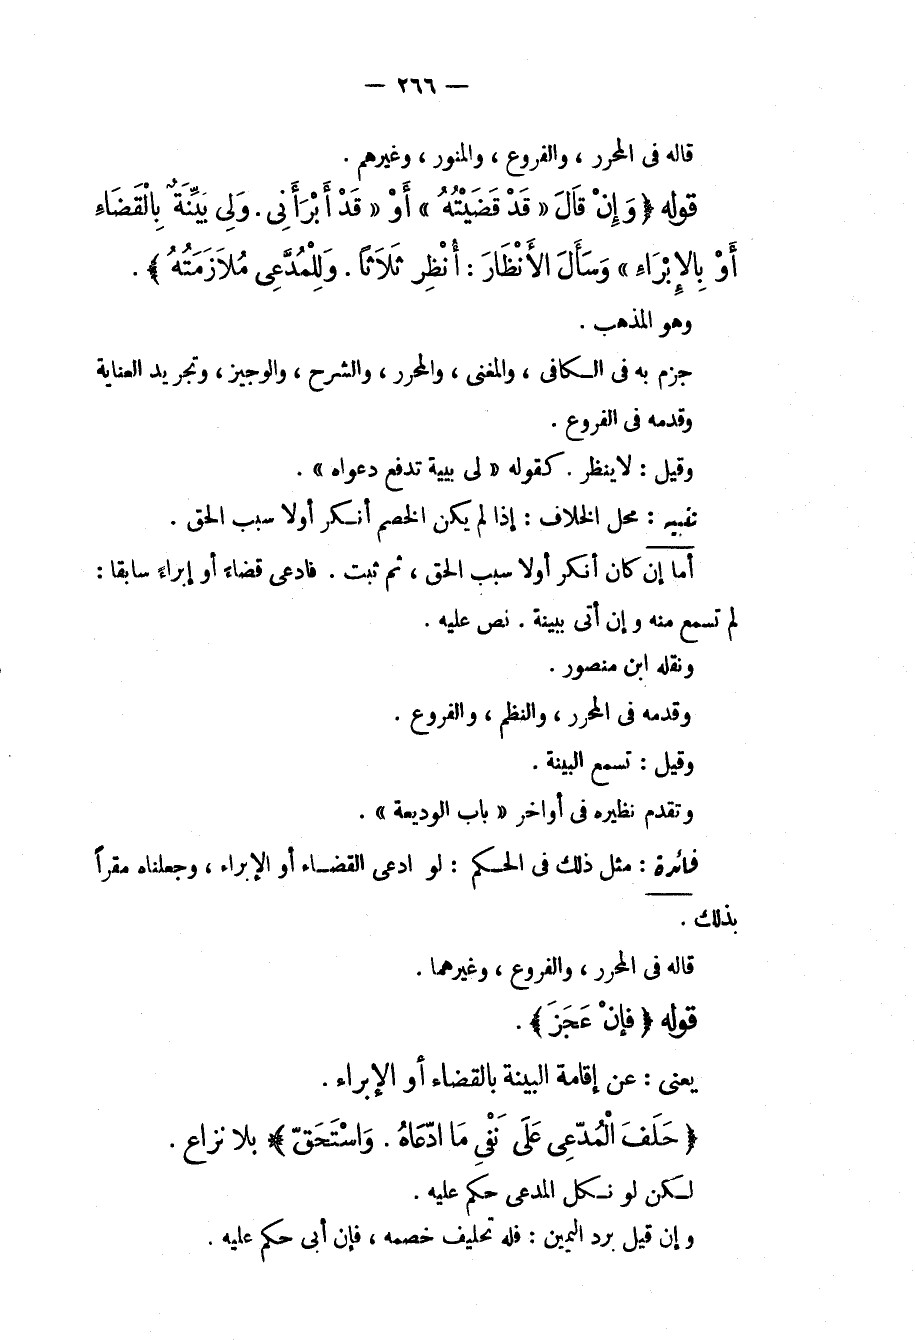 — ٢٦٦ —
قاله فى المحرر ، والفروع ، والمنور ، وغيرهم .
قوله ﴿ وَإِنْ قَالَ « قَدْ قَضَيْتُهُ » أَوْ « قَدْ أَبْرَأَنِى . وَلِى بَيِّنَةٌ بِالْقَضَاءِ
أَوْ بِالإِبْرَاءِ » وَسَأَلَ الأَنْظَارَ : أُنْظِر ثَلَاثاً . وَلِلْمُدَّعِى مُلاَزَمَتُهُ ﴾ .
وهو المذهب .
جزم به فى الـكافى ، والمغنى ، والمحرر ، والشرح ، والوجيز ، وتجريد العناية
وقدمه فى الفروع .
وقيل : لاينظر . كقوله « لى بينة تدفع دعواه » .
تنبيه : محل الخلاف : إذا لم يكن الخصم أنـكر أولا سبب الحق .
أما إن كان أنكر أولا سبب الحق ، ثم ثبت . فادعى قضاءً أو إبراءً سابقا :
لم تسمع منه وإن أتى ببينة . نص عليه .
ونقله ابن منصور .
وقدمه فى المحرر ، والنظم ، والفروع .
وقيل : تسمع البينة .
وتقدم نظيره فى أواخر « باب الوديعة » .
فائدة : مثل ذلك فى الحـكم : لو ادعى القضـاء أو الإبراء ، وجعلناه مقراً
بذلك .
قاله فى المحرر ، والفروع ، وغيرهما .
قوله ﴿ فَإِنْ عَجَزَ ﴾ .
يعنى : عن إقامة البينة بالقضاء أو الإبراء .
﴿ حَلَفَ الْمُدّعِى عَلَى نَفْىِ مَا ادّعَاهُ . وَاسْتَحَقّ ﴾ بلا نزاع .
لـكن لو نـكل المدعى حكم عليه .
وإن قيل برد اليمين : فله تحليف خصمه ، فإن أبى حكم عليه .